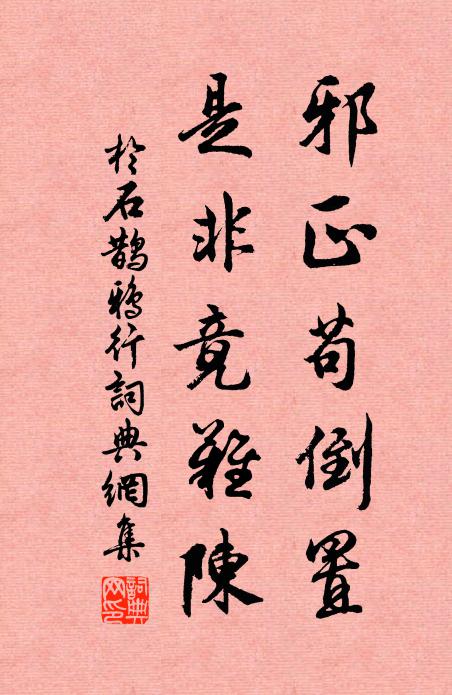 邪正苟倒置
是非竟難陳
於石鵲鴉行詞典網集
詞典
网印